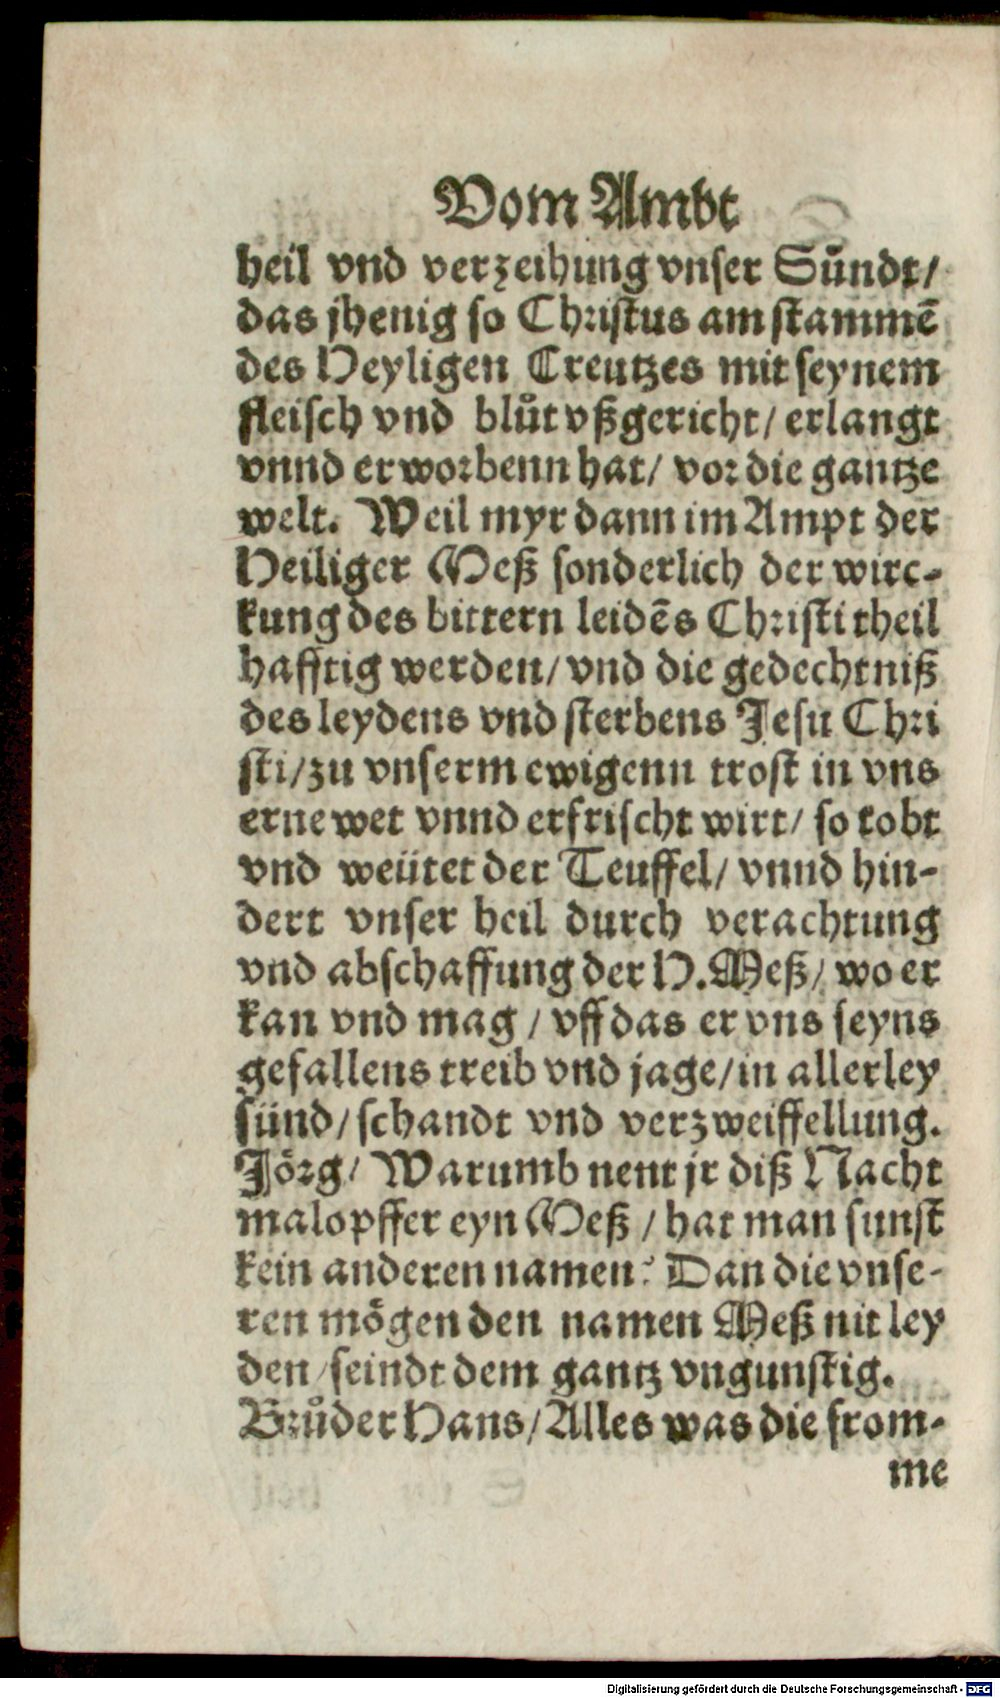 Vom Ambt
heil vnd verzeihung vnser Suͤndt/
das jhenig so Christus am stammē
des Heyligen Creutzes mit seynem
fleisch vnd bluͦt vßgericht/ erlangt
vnnd erworbenn hat/ vor die gantze
welt. Weil myr dann im Ampt der
Heiliger Meß sonderlich der wirc-
kung des bittern leidēs Christi theil
hafftig werden/ vnd die gedechtniß
des leydens vnd sterbens Jesu Chri
sti/zu vnserm ewigenn trost in vns
ernewet vnnd erfrischt wirt/ so tobt
vnd weütet der Teuffel/ vnnd hin-
dert vnser heil durch verachtung
vnd abschaffung der H. Meß/ wo er
kan vnd mag/ vff das er vns seyns
gefallens treib vnd jage/in allerley
sünd/ schandt vnd verzweiffellung.
Joͤrg/ Warumb nent jr diß Nacht
malopffer eyn Meß/ hat man sunst
kein anderen namen? Dan die vnse-
ren moͤgen den namen Meß nit ley
den/seindt dem gantz vngunstig.
Bruͦder Hans/Alles was die from-
me
Digitalisierung gefördert durch die Deutsche Forschungsgemeinschaft - DFG